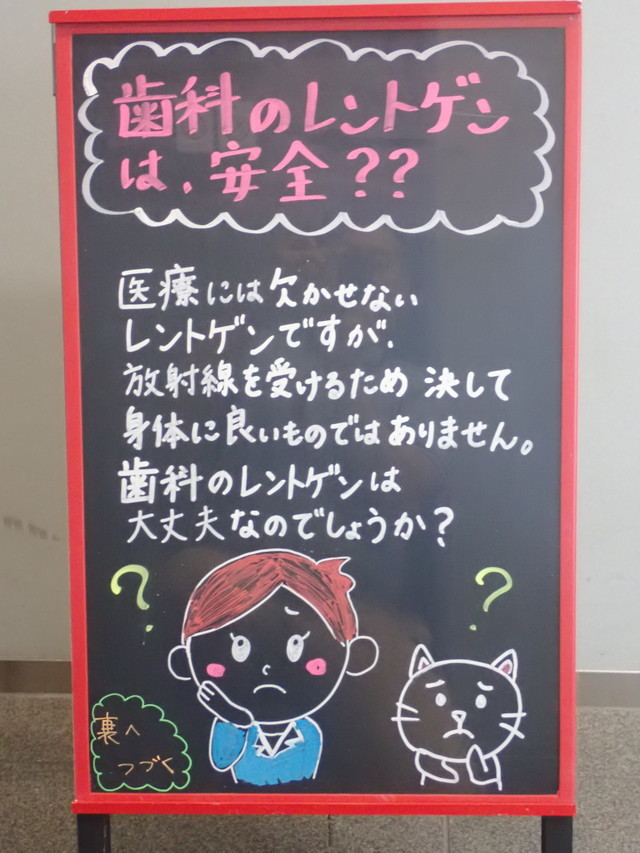 歯科のレントゲン
は、安全??
医療には欠かせない
レントゲンですが、
放射線を受けるため 決して
身体に良いものではありません。
歯科のレントゲンは
大丈夫なのでしょうか?
?
?
裏へ
つづく